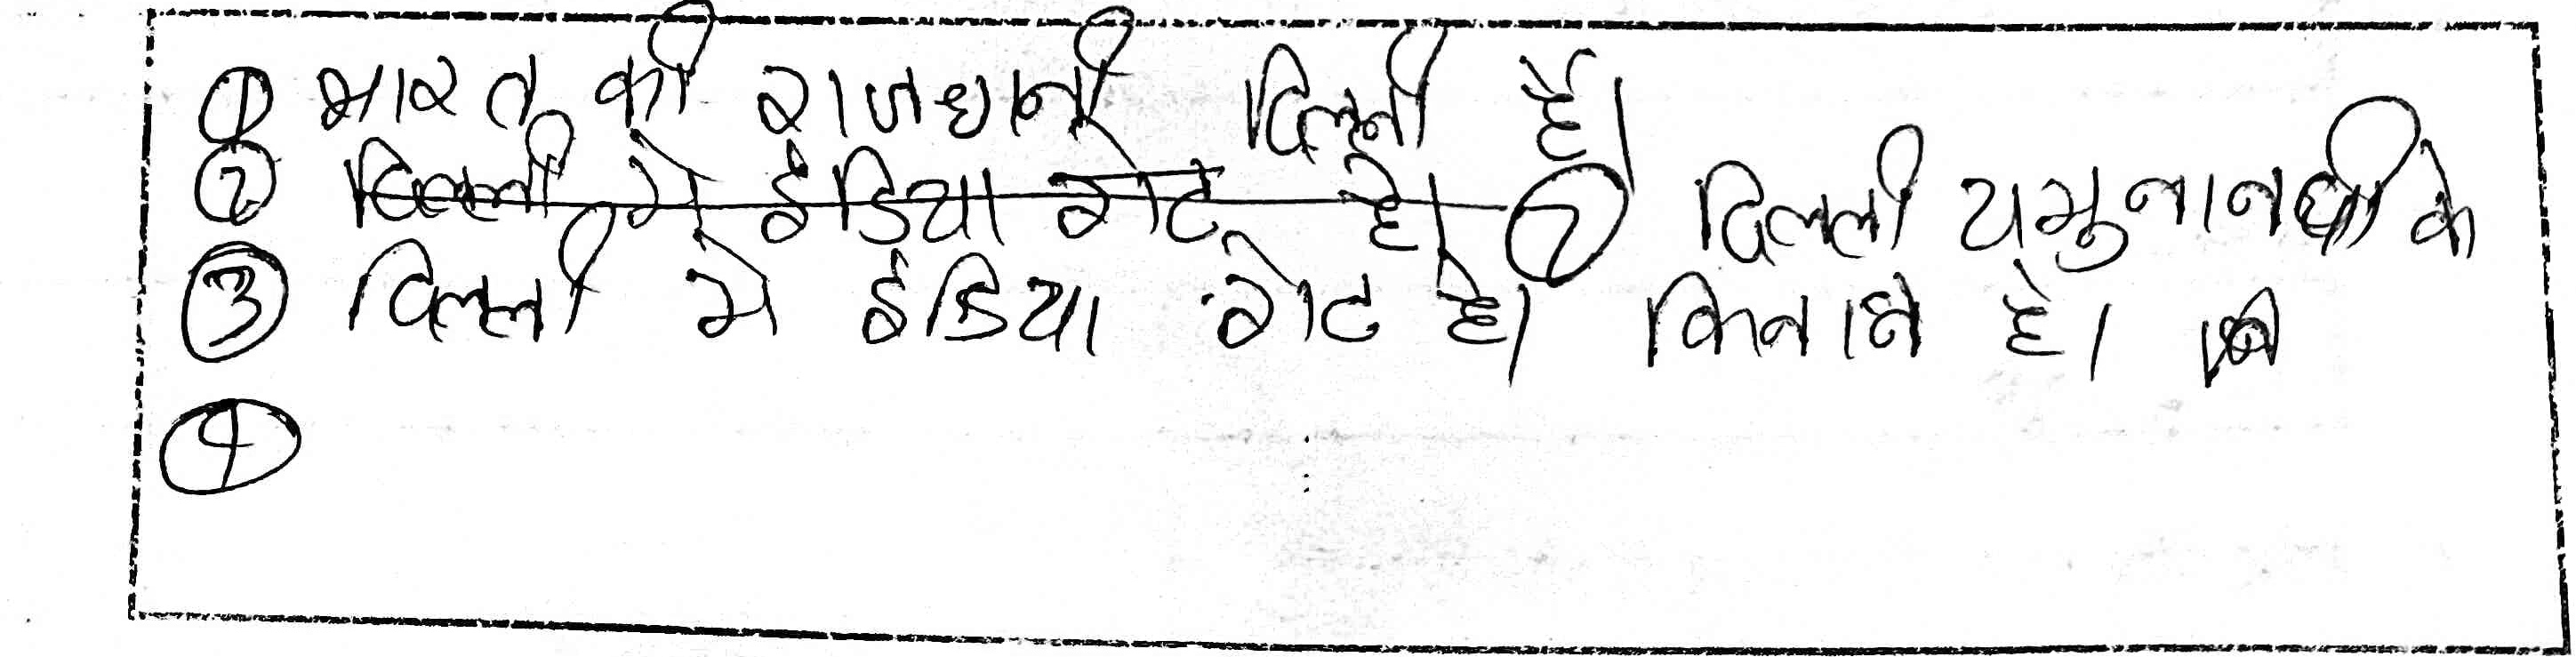 ① भारत की राजधानी दिल्ली है।
② दिल्ली मे इंडिया गेट है। ② दिल्ली यमुना नदी के
③ दिल्ली मे इंडिया गेट है। किनारे है।
④